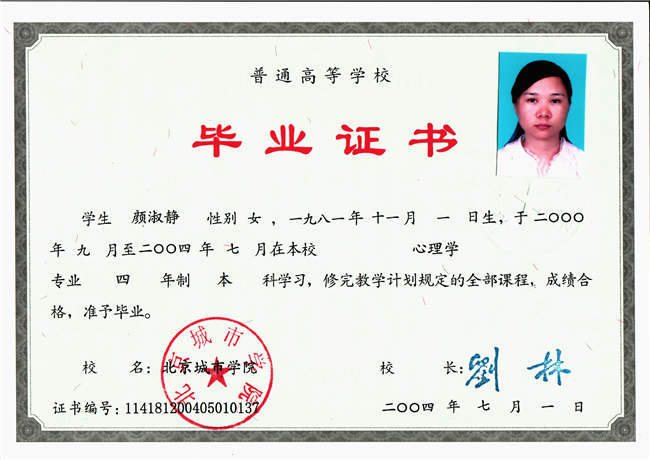 普通高等学校
毕业证书
学生 颜淑静 性别 女 ，一九八一年 十一月 一 日生，于 二〇〇〇
年 九 月至二〇〇四 年 七 月在本校 心理学
专业 四 年制 本 科学习，修完教学计划规定的全部课程，成绩合
格，准予毕业。
校 名：北京城市学院
校 长：劉 林
北京城市学院
证书编号：114181200405010137
二〇〇四 年 七 月 一 日